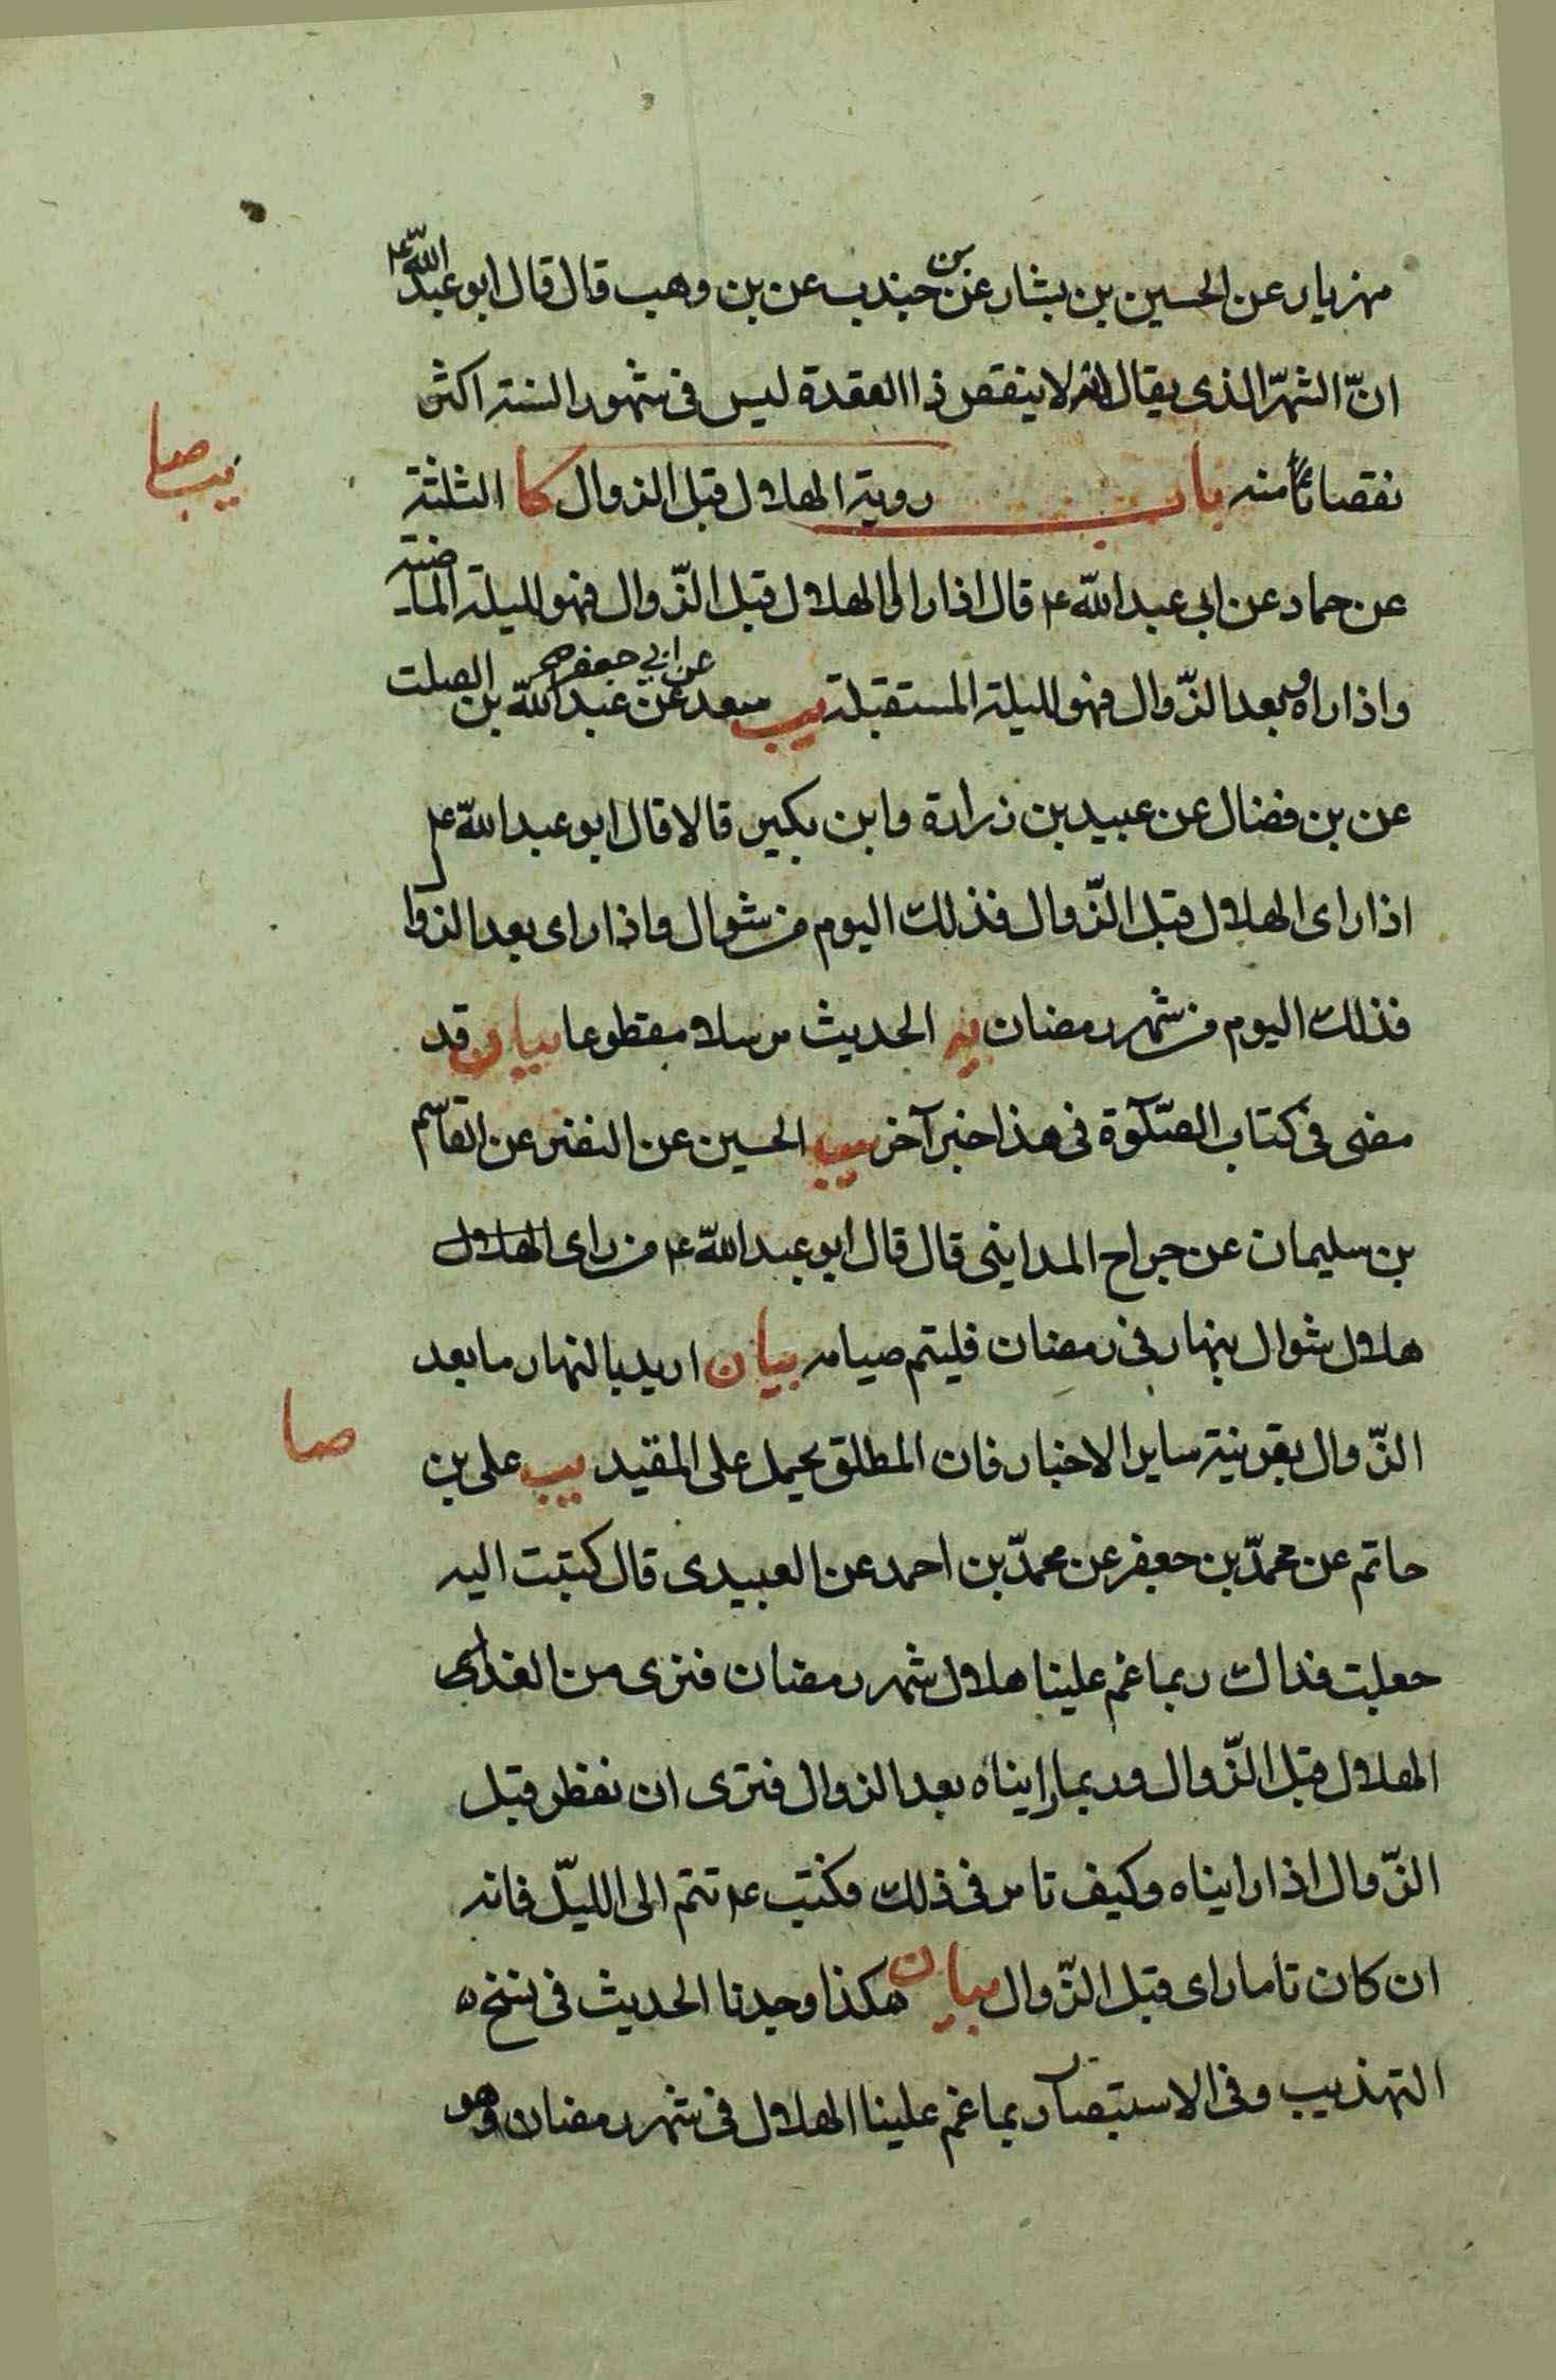 مهزيار عن الحسين بن بشار عن بن جندب عن بن وهب قال قال ابو عبد الله ع
انّ الشهر الذى يقال انه لا ينقص ذا العقدة ليس فى شهور السنة اكثر
نقصانا منه باب روية الهلال قبل الزوال كا الثلثة
يب صا
عن حماد عن ابى عبد الله ع قال اذا راوا الهلال قبل الزّوال فهو لليلة الماضية
واذا راوه بعد الزّوال فهو لليلة المستقبلة يب سعد عن ابي جعفر عن عبد الله بن الصلت
عن بن فضال عن عبيد بن زرارة وابن بكير قالا قال ابو عبد الله ع
اذا راى الهلال قبل الزّوال فذلك اليوم من شوال واذا راى بعد الزوا
فذلك اليوم من شهر رمضان يه الحديث مرسلا مقطوعا بيان وقد
مضى فى كتاب الصّلوة فى هذا خبر آخر يب الحسين عن النضر عن القاسم
بن سليمان عن جراح المداينى قال قال ابو عبد الله ع من راى الهلال
هلال شوال بنهار فى رمضان فليتم صيامه بيان اريد بالنهار ما بعد
الزّوال بقرينة ساير الاخبار فان المطلق يحمل على المقيد يب على بن
صا
حاتم عن محمّد بن جعفر عن محمّد بن احمد عن العبيدى قال كتبت اليه
جعلت فداك ربما غم علينا هلال شهر رمضان فنرى من الغد
الهلال قبل الزّوال وربما رايناه بعد الزوال فترى ان نفطر قبل
الزّوال اذا رايناه وكيف تامر فى ذلك فكتب ع تتم الى الليل فانه
ان كان تاما راى قبل الزّوال بيان هكذا وجدنا الحديث فى نسخ
التهذيب وفى الاستبصار ربما غم علينا الهلال فى شهر رمضان وهو